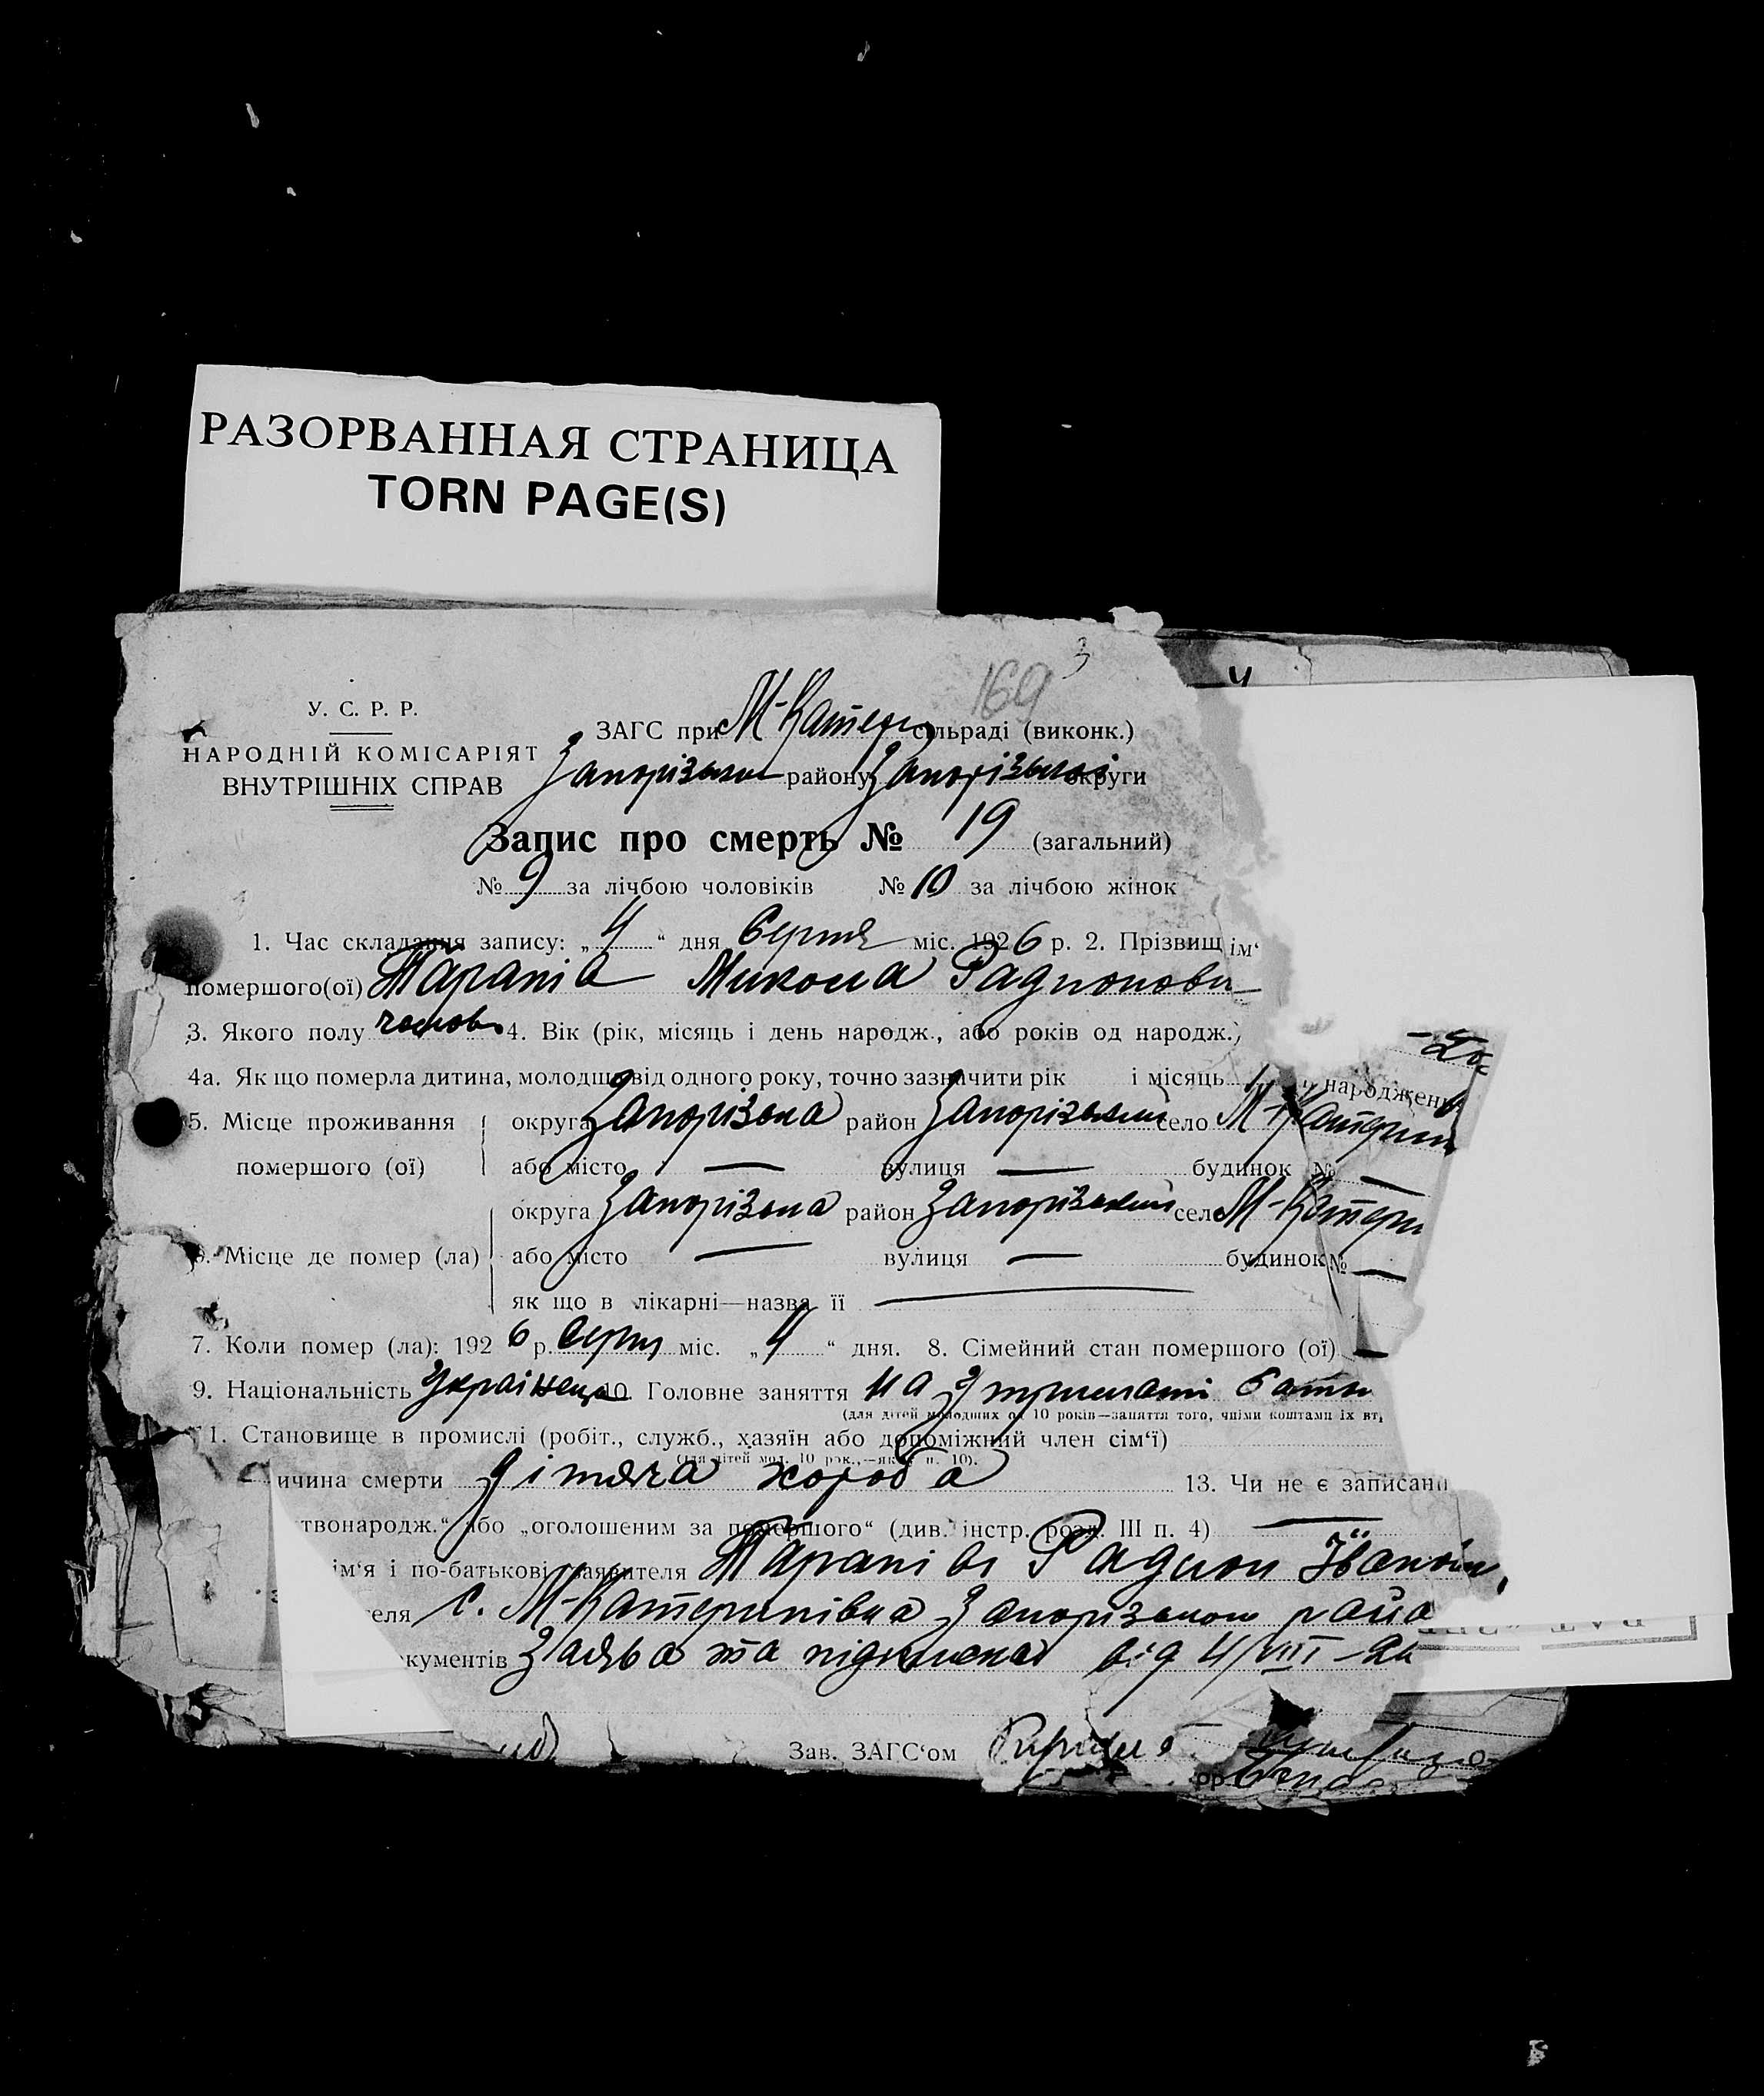 РАЗОРВАННАЯ СТРАНИЦА
TORN PAGE(S)
169
У. С. Р. Р.
НАРОДНІЙ КОМІСАРІЯТ
ВНУТРІШНІХ СПРАВ
ЗАГС при М-Катери сільраді (виконк.)
Запорізького району Запорізької округи
Запис про смерть № 19 (загальний)
№ 9 за лічбою чоловіків № 10 за лічбою жінок
1. Час складання запису: „4“ дня Серпня міс. 1926 р. 2. Прізвищ ім‘
помершого(ої) Микола Радионови
3. Якого полу 4. Вік (рік, місяць і день народж., або років од народж.)
4а. Як що померла дитина, молодша від одного року, точно зазначити рік і місяць народженн
5. Місце проживання помершого (ої) округа Запорізька район Запорізький село М-Катерин
або місто — вулиця — будинок № —
6. Місце де помер (ла) округа Запорізька район Запорізький село М-Катери
або місто — вулиця — будинок № —
як що в лікарні—назва її —
7. Коли помер (ла): 1926 р. Серпн міс. „4“ дня. 8. Сімейний стан помершого (ої) —
9. Національність Українець 10. Головне заняття на утриманні батьк
(для дітей молодших од 10 років—заняття того, чиїми коштами їх вт
11. Становище в промислі (робіт., служб., хазяїн або допоміжний член сім‘ї)
(для дітей мол. 10 рок.,—як в п. 10).
ичина смерти дітяча хороба 13. Чи не є записани
твонародж.“ або „оголошеним за помершого“ (див. інстр. розд. III п. 4) —
ім‘я і по-батькові заявителя Радион Іванови
теля с. М-Катеринівка Запорізького райо
кументів Заява та підписка від 4/VIII-26
Зав. ЗАГС‘ом